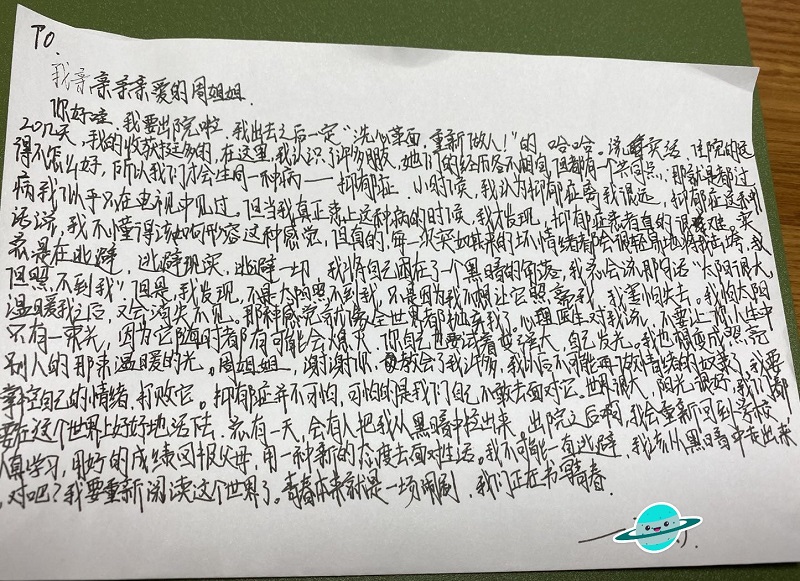 TO.
我亲亲亲亲爱的周姐姐.
你好哇,我要出院啦,我出去之后一定"洗心革面,重新做人!"的,哈哈。说实话,住院的这
20几天,我的收获挺多的,在这里,我认识了许多朋友,她们的经历各不相同,但都有一个共同点,那就是都过
得不怎么好,所以我们才会生同一种病——抑郁症.小时候,我认为抑郁症离我很远,抑郁症这种
病我似乎只在电视中见过,但当我真正患上这种病的时候,我才发现,抑郁症患者真的很难.实
话说,我不懂得该如何形容这种感觉,但真的,每一次突如其来的坏情绪都会很轻易地将我击垮,我
总是在逃避,逃避现实,逃避一切.我将自己困在了一个黑暗的角落,我总会说那句话"太阳很大,
但照不到我"但是,我发现,不是太阳照不到我,只是因为我不想让它照亮我,我害怕失去。我怕太阳
温暖我之后,又会消失不见。那种感觉就像全世界都抛弃我。心理医生对我说,不要让你人生中
只有一束光,因为它随时都有可能会熄灭,你自己也要试着强大,自己发光。我也想变成照亮
别人的那束温暖的光。周姐姐,谢谢你,教会了我许多,我以后不可能再做情绪的奴隶了,我要
掌控自己的情绪,打败它。抑郁症并不可怕,可怕的是我们自己不敢去面对它。世界很大,阳光很好,我们都
要在这个世界上好好地活下去.总有一天,会有人把我从黑暗中拉出来.出院之后啊,我会重新回到学校
认真学习,用好的成绩回报父母,用一种新的态度去面对生活。我不可能一直逃避,我该从黑暗中走出来
,对吧?我要重新阅读这个世界了。青春本来就是一场闹剧,我们正在书写青春.